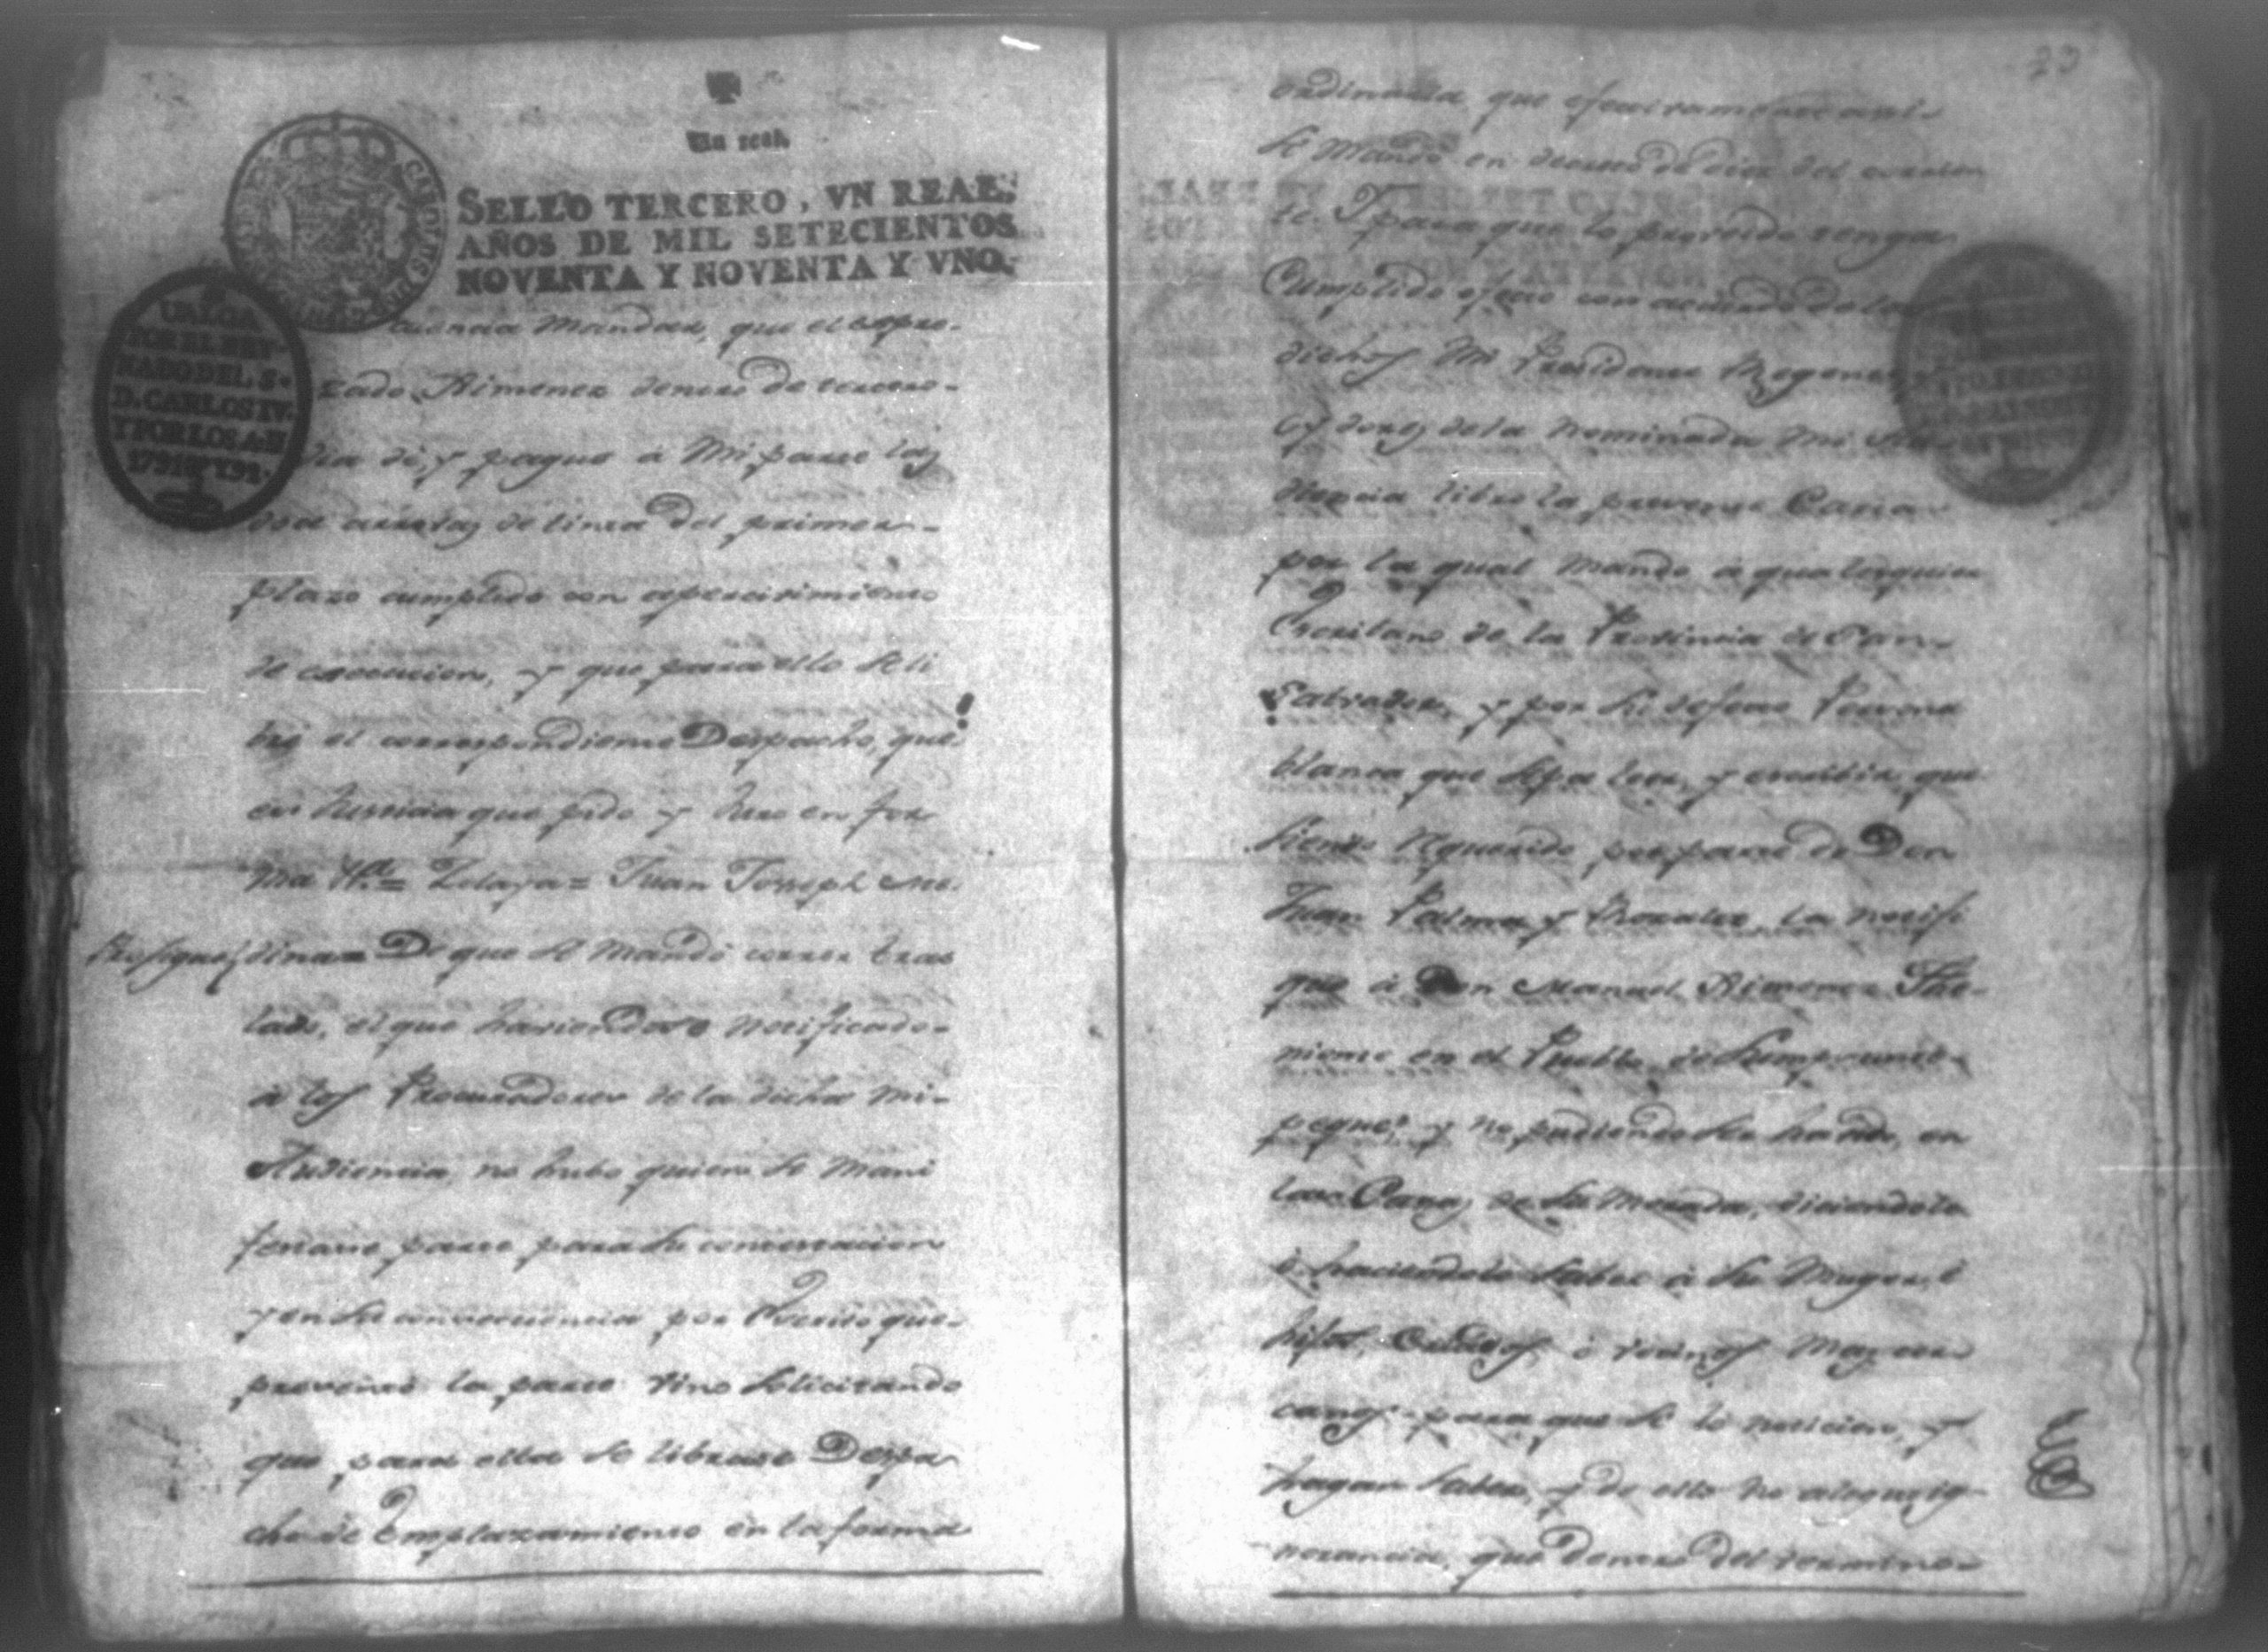 Un real.
SELLO TERCERO, VN REAL,
AÑOS DE MIL SETECIENTOS
NOVENTA Y NOVENTA Y VNO.
VALGA
POR EL REY-
NADO DEL S.
D. CARLOS IV.
Y POR LOS AS
1791 Y 92.
cuencia mandar, que el expre-
zado Ximenez dentro de tercero
dia dé, y pague a mi parte las
doce arrobas de tinta del primer
plazo cumplido con apercivimiento
de execucion, y que para ello se li
bre el correspondiente Despacho, que
es Justicia que pido y Juro en for
ma &ª = Zelaya = Juan Joseph Me-
Prosigue dina = De que se mandó correr tras
lado, el que haviendose notificado
a los Procuradores de la dicha mi
Audiencia, no hubo quien se mani
festase parte para su contestacion
y en su consecuencia por Escrito que
presentó la parte vino solicitando
que para ella se librase Despa
cho de Emplazamiento en la forma
23
ordinaria que efectivamente asi
se mandó en decreto de diez del corrien
te. Y para que lo proveido tenga
Cumplido efecto con acuerdo de los
dichos mi Presidente Regente, y
Oydores de la nominada mi Au
diencia libro la presente Carta
por la qual mando a qualesquier
Escrivano de la Provincia de San
Salvador, y por su defecto Persona
blanca que sepa leer, y escribir que
siendo requerido por parte de Don
Juan Palma y Morales, la notifi
que a Don Manuel Ximenez The-
niente en el Pueblo de
peque, y no pudiendo ser havido, en
las Casas de su morada, diciendolo
o haciendolo saber a su Muger,
hijos, Criados, o vecinos mas cer
canos para que se lo noticien, y
hagan saber, y de ello no alegue ig
norancia, que dentro del termino